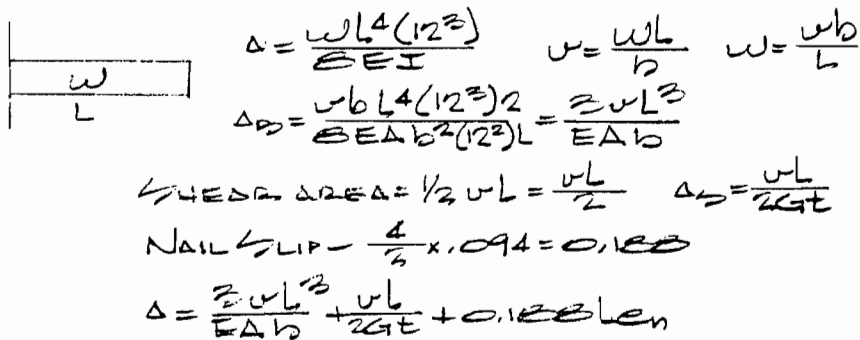 w
L
Δ = wL⁴(12³)/8EI   v = wL/b   w = vb/L
Δ_B = vbL⁴(12³)2/8EAb²(12²)L = 3vL³/EAb
SHEAR AREA = 1/2 vL = vL/2   Δ_S = vL/2Gt
NAIL SLIP - 4/2 x .094 = 0.188
Δ = 3vL³/EAb + vL/2Gt + 0.188Leₙ